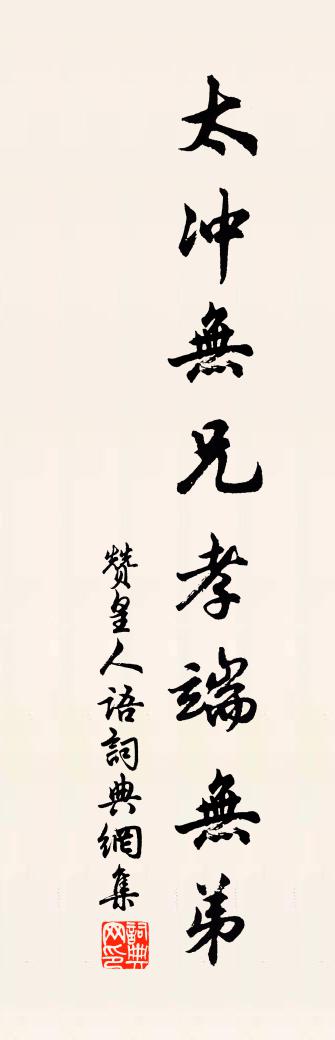 太沖無兄孝端無弟
贊皇人語詞典網集
詞典网印